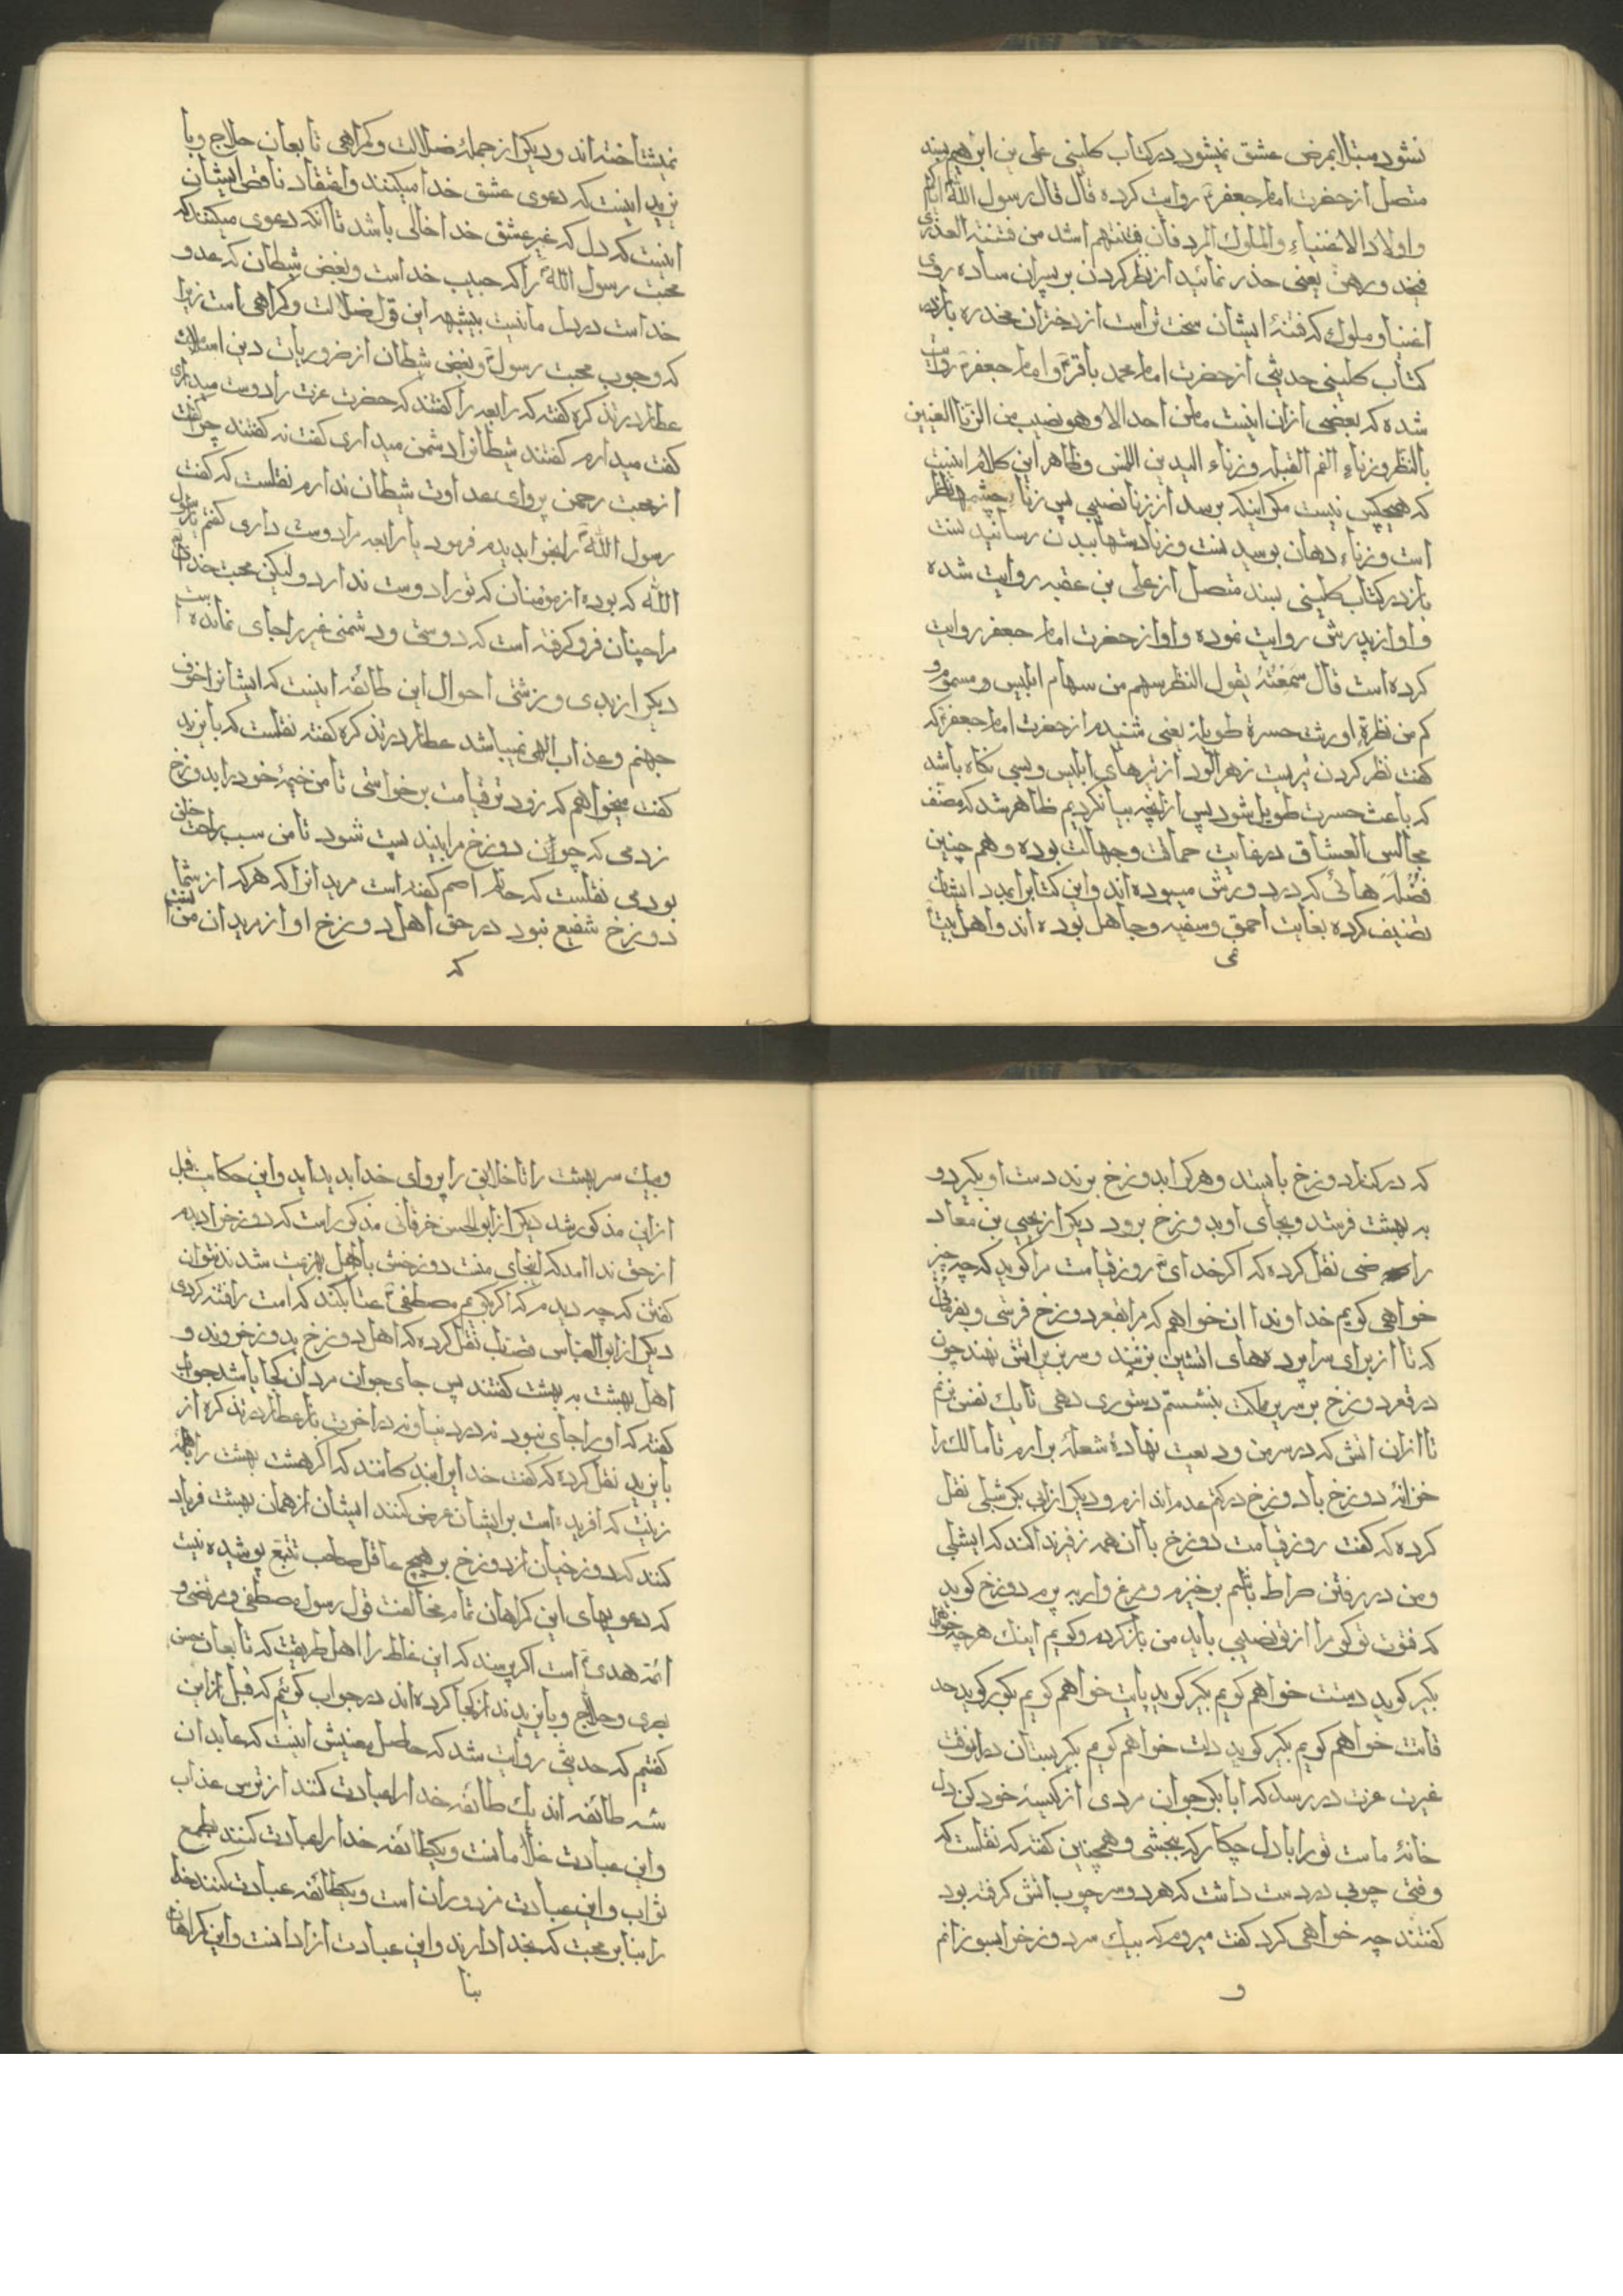 نشود مبتلا بمرض عشق نمیشود در کتاب کلینی علی بن ابراهیم بسند
متصل از حضرت امام جعفرؑ روایت کرده قال قال رسول اللهؐ ایاکم
و اولاد الاغنیاء و الملوک المرد فان فتنتهم اشد من فتنة العذاری
فی خدورهن یعنی حذر نمائید از نظر کردن بر پسران ساده روی
اغنیا و ملوک که فتنهٔ ایشان سخت تر است از دختران مخدره باز در
کتاب کلینی حدیثی از حضرت امام محمد باقرؑ و امام جعفرؑ روایت
شده که بعضی از ان اینست ما من احد الا و هو نصیب من الزنا العینین
بالنظر و زناء الفم القبله و زناء الیدین اللمس و ظاهر این کلام اینست
که هیچکس نیست مکر اینکه برسد از زنا نصیبی پس زناء چشمها نظر
است و زناء دهان بوسیدنست و زنا دستها بیدن رسانیدنست
باز در کتاب کلینی بسند متصل از علی بن عقبه روایت شده
و او از پدرش روایت نموده و او از حضرت امام جعفر روایت
کرده است قال سَمِعْتُهُ یقول النظر سهم من سهام ابلیس و مسموم و
کم من نظرةٍ اورثت حسرة طویلة یعنی شنیدم از حضرت امام جعفرؑ که
گفت نظر کردن تیریست زهرالود از تیرهای ابلیس و بسی نکاه باشد
که باعث حسرت طویل شود پس از انچه بیان کردیم ظاهر شد که مصنف
مجالس العشاق در غایت حماقت و جهالت بوده و هم چنین
فضلَه هائی که در دورش میبوده اند و این کتابرا بمدد ایشان
تصنیف کرده بغایت احمق و سفیه و جاهل بوده اند و اهل بیت را
نمیشناخته اند و دیکر از جملهٔ ضلالت و کمراهی تابعان حلاج و با
یزید اینست که دعوی عشق خدا میکنند و اعتقاد ناقص ایشان
اینست که دل که غیر عشق خدا خالی باشد تا انکه دعوی میکنند که
محبت رسول اللهؐ را که حبیب خداست و بغض شیطان که عدو
خداست در دل ما نیست بیشبهه این قول ضلالت و کمراهی است زیرا
که وجوب محبت رسولؐ و بغض شیطان از ضروریات دین اسلامست
عطار در تذکره گفته که رابعه را گفتند که حضرت عزت را دوست میداری
گفت میدارم گفتند شیطانرا دشمن میداری گفت نه گفتند چرا گفت
از محبت رحمن پروای عداوت شیطان ندارم نقلست که گفت
رسول اللهؐ را بخواب دیدم فرمود یا رابعه مرا دوست داری گفتم یا رسول
الله که بوده از مؤمنان که تو را دوست ندارد و لیکن محبت خدا
مرا چنان فرو کرفته است که دوستی و دشمنی غیر را جای نمانده است
دیکر از بدی و زشتی احوال این طائفه اینست که ایشانرا خوف
جهنم و عذاب الهی نمیباشد عطار در تذکره گفته نقلست که بایزید
گفت میخواهم که زودتر قیامت برخواستی تا من خیمهٔ خود را بدوزخ
زدمی که چون دوزخ مرا بیند پست شود تا من سبب راحت خلق
بودمی نقلست که حاتم اصم گفته است مریدانرا که هر که از شما
دوزخ شفیع نبود در حق اهل دوزخ او از مریدان من نیست
که
که در کنار دوزخ بایستد و هر کرا بدوزخ برند دست او بکیرد و
به بهشت فرستد و بجای او بدوزخ برود دیکر از یحیی بن معاد
راضی نقل کرده که اکر خدایؑ روز قیامت مرا کوید که چه چیز
خواهی کویم خداوندا ان خواهم که مرا بقعر دوزخ فرستی و بفرمائی
که تا از برای سراپرده های اتشین بزنند و سریر بر اتش نهند چون
در قعر دوزخ بر سریر مملکت بنشستم دستوری دهی تا یک نفس بزنم
تا از ان اتش که در سر من ودیعت نهادهٔ شعلهٔ برارم تا مالک را
خزانهٔ دوزخ با دوزخ در کتم عدم اندازم و دیکر از ابی بکر شبلی نقل
کرده که گفت روز قیامت دوزخ با ان همه زفیر ندا کند که ای شبلی
و من در رفتن صراط باشم برخیزم و مرغ وار بپرم دوزخ کوید
که قوت تو کو را از تو نصیبی باید من باز کردم و کویم اینک هر چه خواهی
بکیر کوید دستت خواهم کویم بکیر کوید پایت خواهم کویم بکیر کوید حد
قاتت خواهم کویم بکیر کوید دلت خواهم کویم بکیر بستان در انوقت
غیرت عزت در رسد که ابا بکر جوان مردی از کیسهٔ خود کن دل
خانهٔ ماست تو را با دل چکار که ببخشی و همچنین گفته که نقلست که
وقتی چوبی در دست داشت که هر دو سر چوب اتش کرفته بود
گفتند چه خواهی کرد گفت میروم که بیک سر دوزخرا بسوزانم
و
و بیک سر بهشت را تا خلایق را پروای خدا بدید اید و این حکایت قبل
از این مذکور شد دیکر از ابو الحسن خرقانی مذکور است که دوزخرا دیدم
از حق ندا امد که اینجای منت دوزخش با اهل بهزیمت شدند نتوان
گفتن که چه دیدم که اکر بکویم مصطفیؐ عتاب کند که امت را فتنه کردی
دیکر از ابو العباس قصاب نقل کرده که اهل دوزخ بدوزخ روند و
اهل بهشت به بهشت گفتند پس جای جوان مردان کجا باشد جواب
گفته که او را جای نبود نه در دنیا و نه در اخرت باز عطار در تذکره از
بایزید نقل کرده که گفت خدایرا بندکانند که اکر هشت بهشت را با همه
زینت که افریده است بر ایشان عرض کنند ایشان از همان بهشت فریاد
کنند که دوزخیان از دوزخ بر هیچ عاقل صاحب تتبع پوشیده نیست
که دعویهای این کمراهان تمام مخالفت قول رسول مصطفی و مرتضی و
ائمه هدیؑ است اکر پرسند که این غلط را اهل طریقت که تابعان حسن
بصری و حلاج و بایزیدند از کجا کرده اند در جواب کوئیم که قبل از این
گفتیم که حدیثی روایت شد که حاصل معنیش اینست که عابدان
سه طائفه اند یک طائفه خدا را عبادت کنند از ترس عذاب
و این عبادت غلامانست و یکطائفه خدا را عبادت کنند بطمع
ثواب و این عبادت مزدوران است و یکطائفه عبادت کنند خدا
را بنا بر محبت که بخدا دارند و این عبادت ازادانست و این کمراهان
بنا